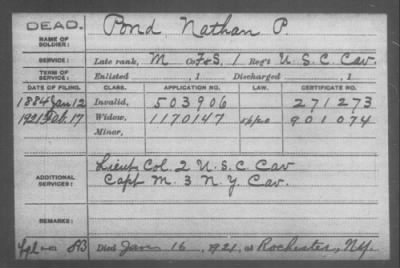 DEAD.
NAME OF SOLDIER: Pond Nathan P.
SERVICE: Late rank, M Co. F&S, 1 Reg't U.S.C. Cav.
TERM OF SERVICE: Enlisted , 1 Discharged , 1
DATE OF FILING. CLASS. APPLICATION NO. LAW. CERTIFICATE NO.
1884 Jan 12 Invalid, 503906 271273
1921 Feb. 17 Widow, 1170147 901074
Minor,
ADDITIONAL SERVICES: Lieut Col. 2 U.S.C. Cav
Capt M. 3 N.Y. Cav.
REMARKS:
Died Jan 16, 1921, at Rochester, N.Y.